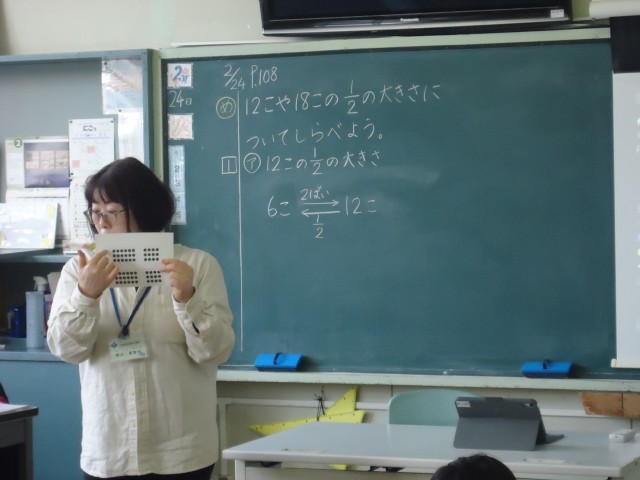 Panasonic
2/24 P.108
2月
24日
め 12こや18この1/2の大きさに
ついてしらべよう。
1 ア 12この1/2の大きさ
2ばい
6こ 12こ
1/2
2